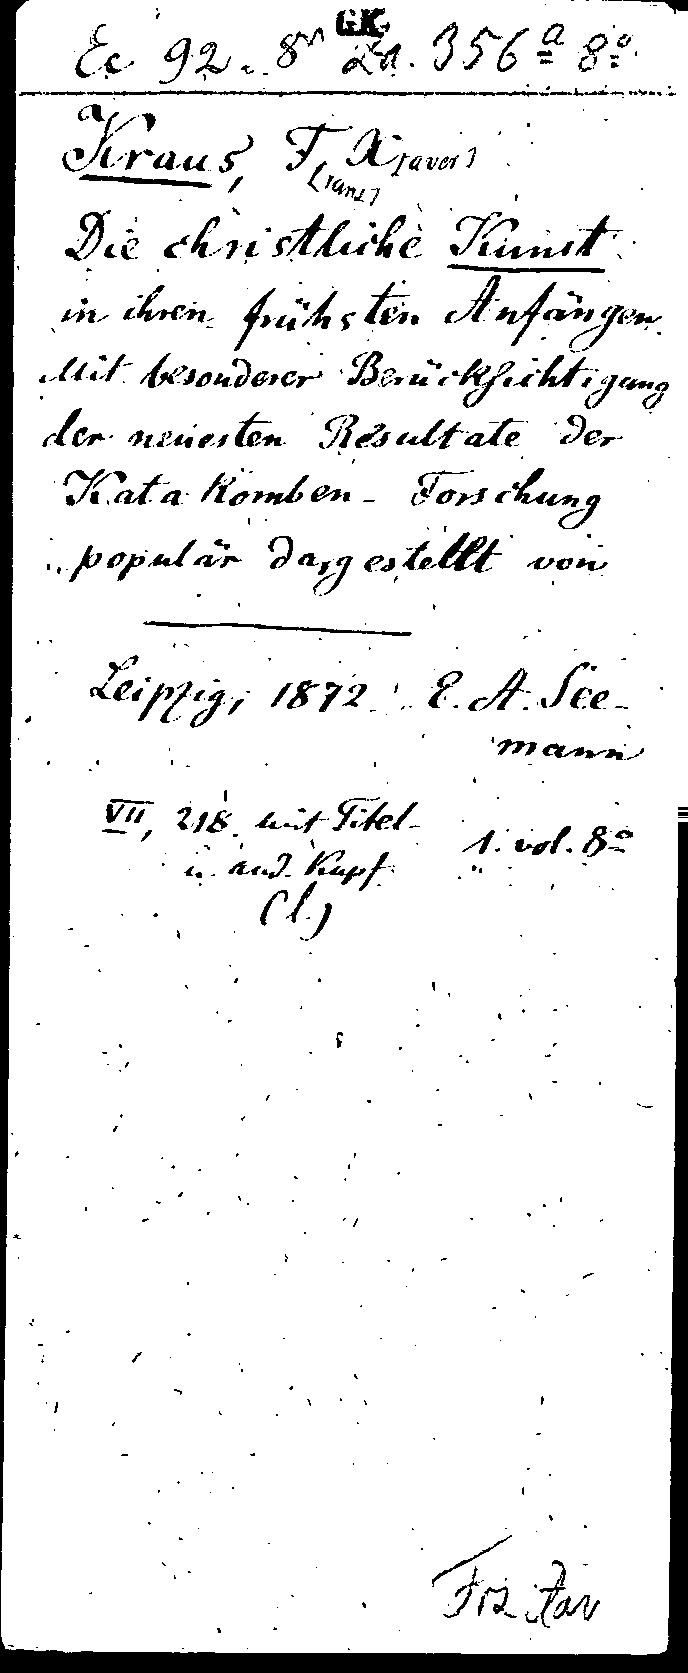 GK
Ec 92. 8° La. 356ª 8°
Kraus, F[ranz] X[aver]
Die christliche Kunst
in ihren frühsten Anfängen.
Mit besonderer Berücksichtigung
der neuesten Resultate der
Katakomben-Forschung
populär dargestellt von
Leipzig, 1872. E. A. See-
mann
VII, 218. mit Titel-
u. and. Kupf. 1. vol. 8°
(l.)
Frz Xav